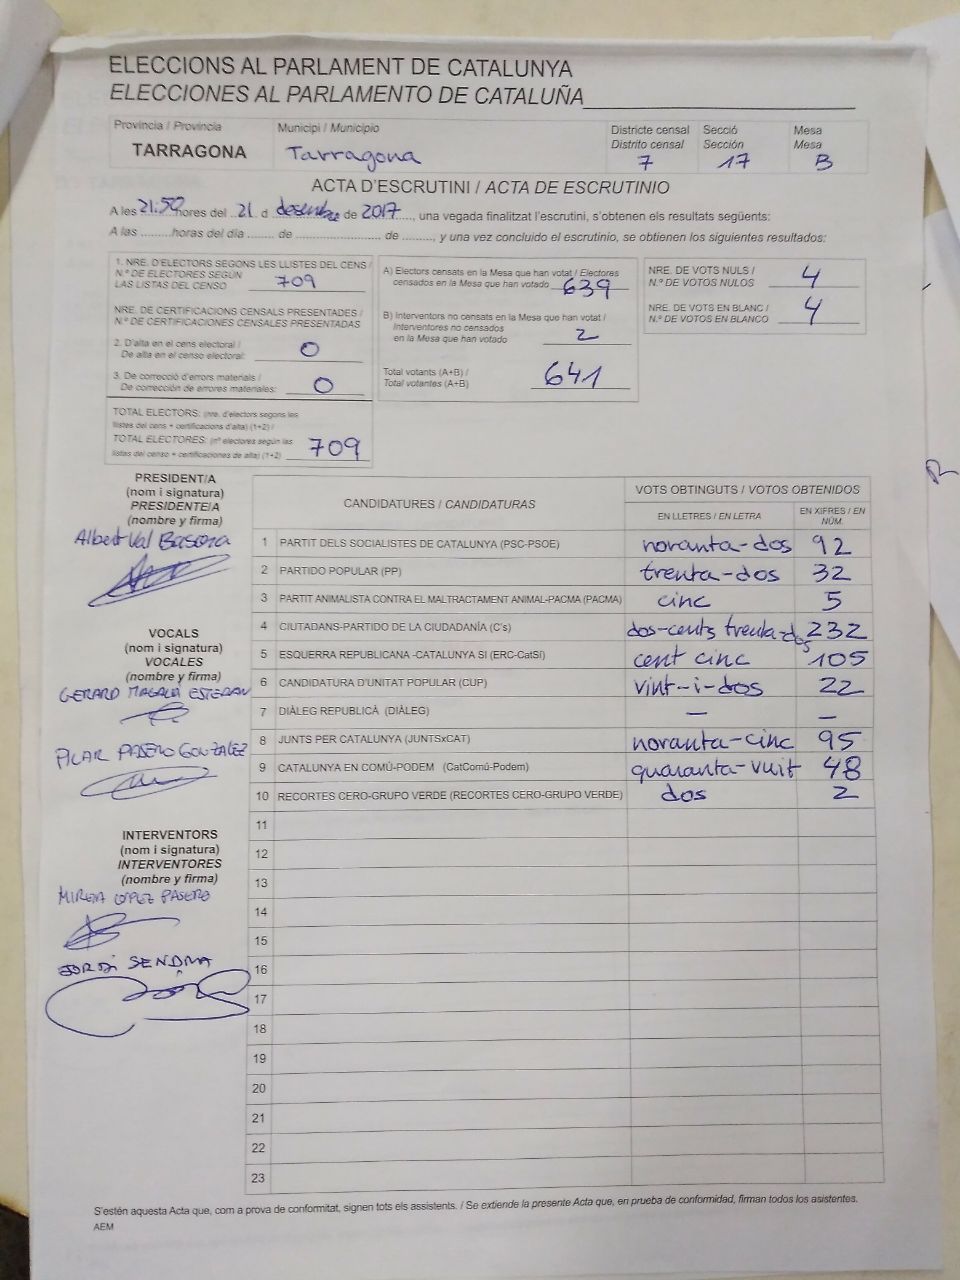 ELECCIONS AL PARLAMENT DE CATALUNYA
ELECCIONES AL PARLAMENTO DE CATALUÑA
Província / Provincia
TARRAGONA
Municipi / Municipio
Tarragona
Districte censal
Distrito censal
7
Secció
Sección
17
Mesa
Mesa
B
ACTA D'ESCRUTINI / ACTA DE ESCRUTINIO
A les 21:50 hores del 21 d desembre de 2017, una vegada finalitzat l'escrutini, s'obtenen els resultats següents:
A las .........horas del día ....... de ........................ de ........, y una vez concluido el escrutinio, se obtienen los siguientes resultados:
1. NRE. D'ELECTORS SEGONS LES LLISTES DEL CENS /
N.º DE ELECTORES SEGÚN
LAS LISTAS DEL CENSO 709
NRE. DE CERTIFICACIONS CENSALS PRESENTADES /
N.º DE CERTIFICACIONES CENSALES PRESENTADAS
2. D'alta en el cens electoral /
De alta en el censo electoral: 0
3. De correcció d'errors materials /
De corrección de errores materiales: 0
TOTAL ELECTORS: (nre. d'electors segons les
llistes del cens + certificacions d'alta) (1+2) /
TOTAL ELECTORES: (nº electores según las
listas del censo + certificaciones de alta) (1+2) 709
A) Electors censats en la Mesa que han votat / Electores
censados en la Mesa que han votado 639
B) Interventors no censats en la Mesa que han votat /
Interventores no censados
en la Mesa que han votado 2
Total votants (A+B) /
Total votantes (A+B) 641
NRE. DE VOTS NULS /
N.º DE VOTOS NULOS 4
NRE. DE VOTS EN BLANC /
N.º DE VOTOS EN BLANCO 4
PRESIDENT/A
(nom i signatura)
PRESIDENTE/A
(nombre y firma)
Albert Val Basora
VOCALS
(nom i signatura)
VOCALES
(nombre y firma)
GERARD MAGALIÀ ESTEBAN
PILAR PASERO GONZALEZ
INTERVENTORS
(nom i signatura)
INTERVENTORES
(nombre y firma)
MIREIA LÓPEZ PASERO
JORDI SENDRA
CANDIDATURES / CANDIDATURAS
VOTS OBTINGUTS / VOTOS OBTENIDOS
EN LLETRES / EN LETRA
EN XIFRES / EN NÚM.
1 PARTIT DELS SOCIALISTES DE CATALUNYA (PSC-PSOE) noranta-dos 92
2 PARTIDO POPULAR (PP) trenta-dos 32
3 PARTIT ANIMALISTA CONTRA EL MALTRACTAMENT ANIMAL-PACMA (PACMA) cinc 5
4 CIUTADANS-PARTIDO DE LA CIUDADANÍA (C's) dos-cents trenta-dos 232
5 ESQUERRA REPUBLICANA -CATALUNYA SI (ERC-CatSí) cent cinc 105
6 CANDIDATURA D'UNITAT POPULAR (CUP) vint-i-dos 22
7 DIÀLEG REPUBLICÀ (DIÀLEG) — —
8 JUNTS PER CATALUNYA (JUNTSxCAT) noranta-cinc 95
9 CATALUNYA EN COMÚ-PODEM (CatComú-Podem) quaranta-vuit 48
10 RECORTES CERO-GRUPO VERDE (RECORTES CERO-GRUPO VERDE) dos 2
11
12
13
14
15
16
17
18
19
20
21
22
23
S'estén aquesta Acta que, com a prova de conformitat, signen tots els assistents. / Se extiende la presente Acta que, en prueba de conformidad, firman todos los asistentes.
AEM